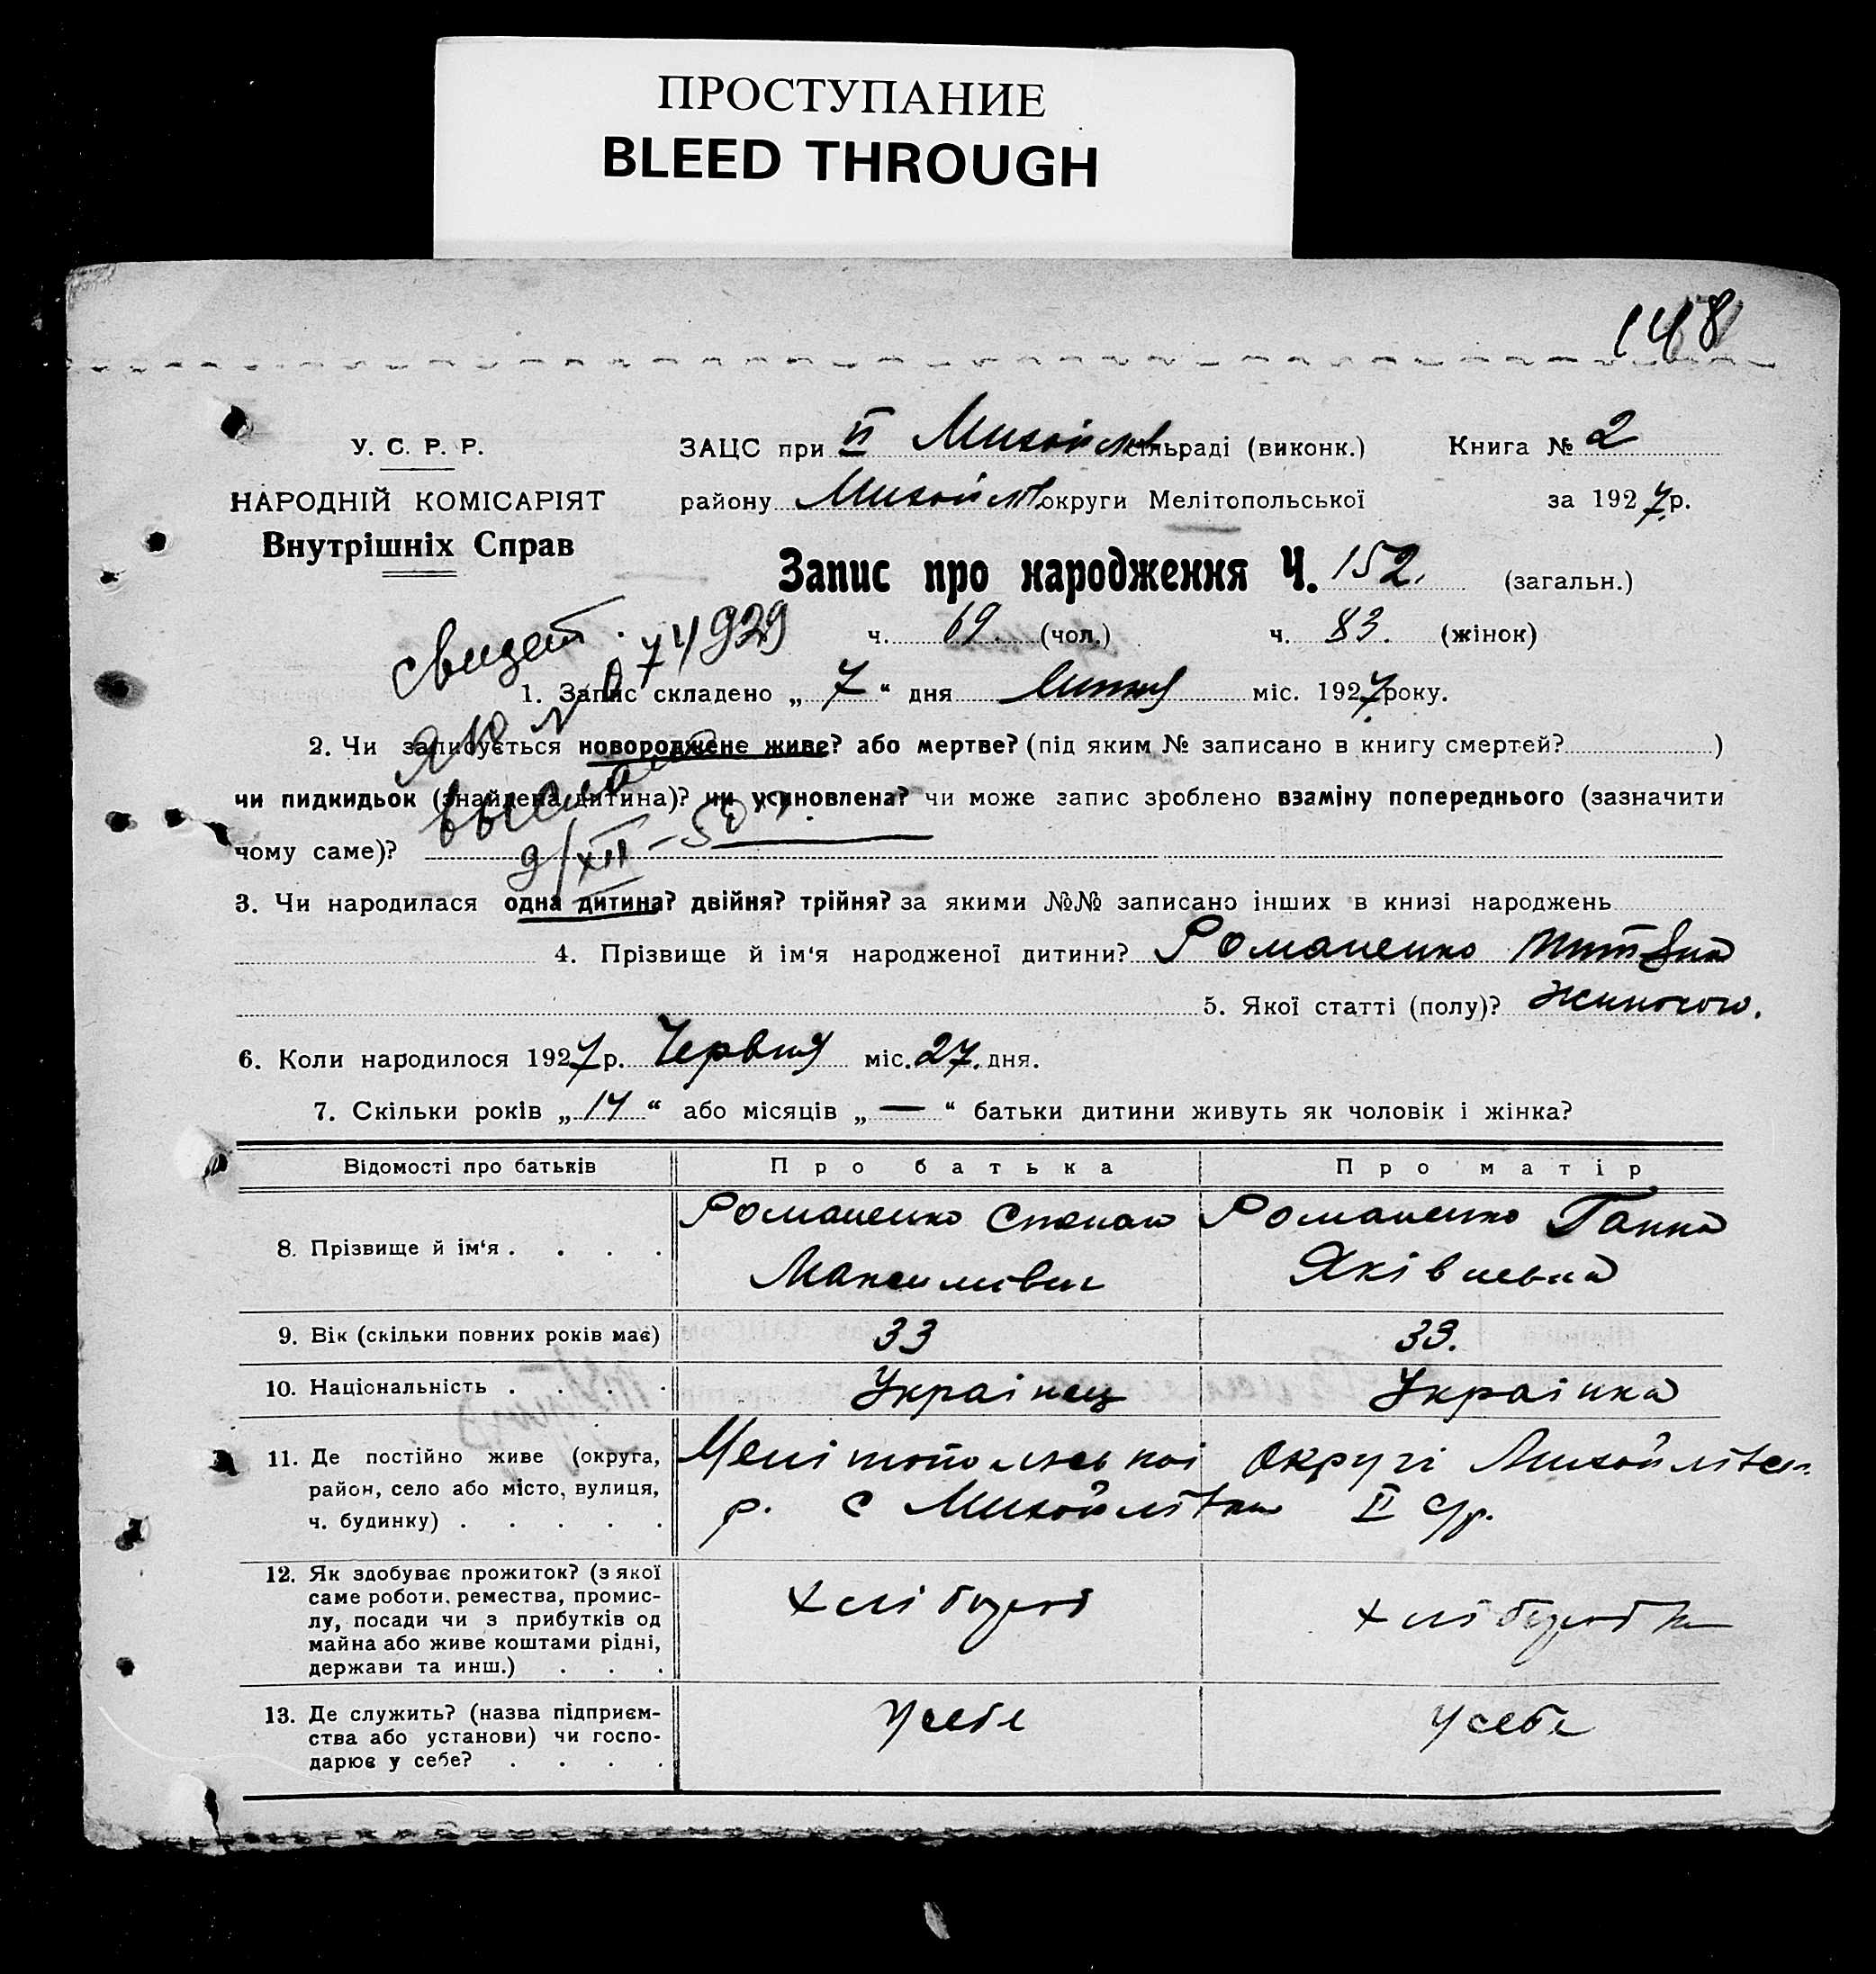 ПРОСТУПАНИЕ
BLEED THROUGH
148
У. С. Р. Р.
НАРОДНІЙ КОМІСАРІЯТ
Внутрішніх Справ
ЗАЦС при ІІ Михайлів сільраді (виконк.) Книга № 2
району Михайлів округи Мелітопольської за 1927 р.
Запис про народження Ч. 152. (загальн.)
ч. 69 (чол.) ч. 83. (жінок)
свидет.
ЯЮ № 074929
выслано
9/XII - 50 г.
1. Запис складено „ 7 “ дня Липня міс. 1927 року.
2. Чи записується новороджене живе? або мертве? (під яким № записано в книгу смертей? )
чи пидкидьок (знайдена дитина)? чи усиновлена? чи може запис зроблено взаміну попереднього (зазначити
чому саме)?
3. Чи народилася одна дитина? двійня? трійня? за якими №№ записано інших в книзі народжень
4. Прізвище й ім‘я народженої дитини? Романенко
5. Якої статті (полу)? жиночою.
6. Коли народилося 1927 р. Червня міс. 27. дня.
7. Скільки років „ 14 “ або місяців „ — “ батьки дитини живуть як чоловік і жінка?
Відомості про батьків Про батька Про матір
8. Прізвище й ім‘я . . . . Романенко Степан Романенко Ганна
Максимович Яківневна
9. Вік (скільки повних років має) 33 33.
10. Національність . . . . Украінец Украінка
11. Де постійно живе (округа,
район, село або місто, вулиця,
ч. будинку) . . . . .
Мелітопольськоі округі Михайлівськ.
р. с Михайлівка ІІ с/р.
12. Як здобуває прожиток? (з якої
саме роботи, ремества, промис-
лу, посади чи з прибутків од
майна або живе коштами рідні,
держави та инш.) . . .
хлібороб хліборобка
13. Де служить? (назва підприєм-
ства або установи) чи госпо-
дарює у себе? . . . .
у себе у себе